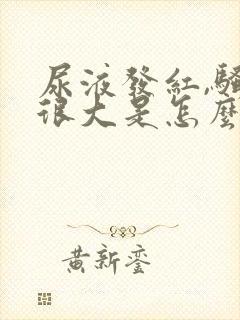 尿液發紅,騷
很大是怎麼
黃新鑾